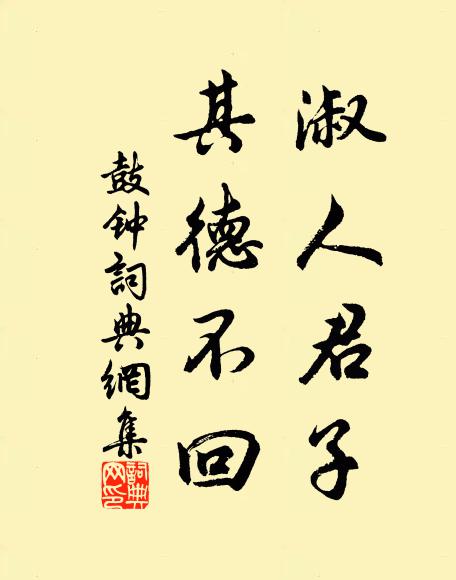 淑人君子
其德不回
鼓钟詞典網集
詞典网印